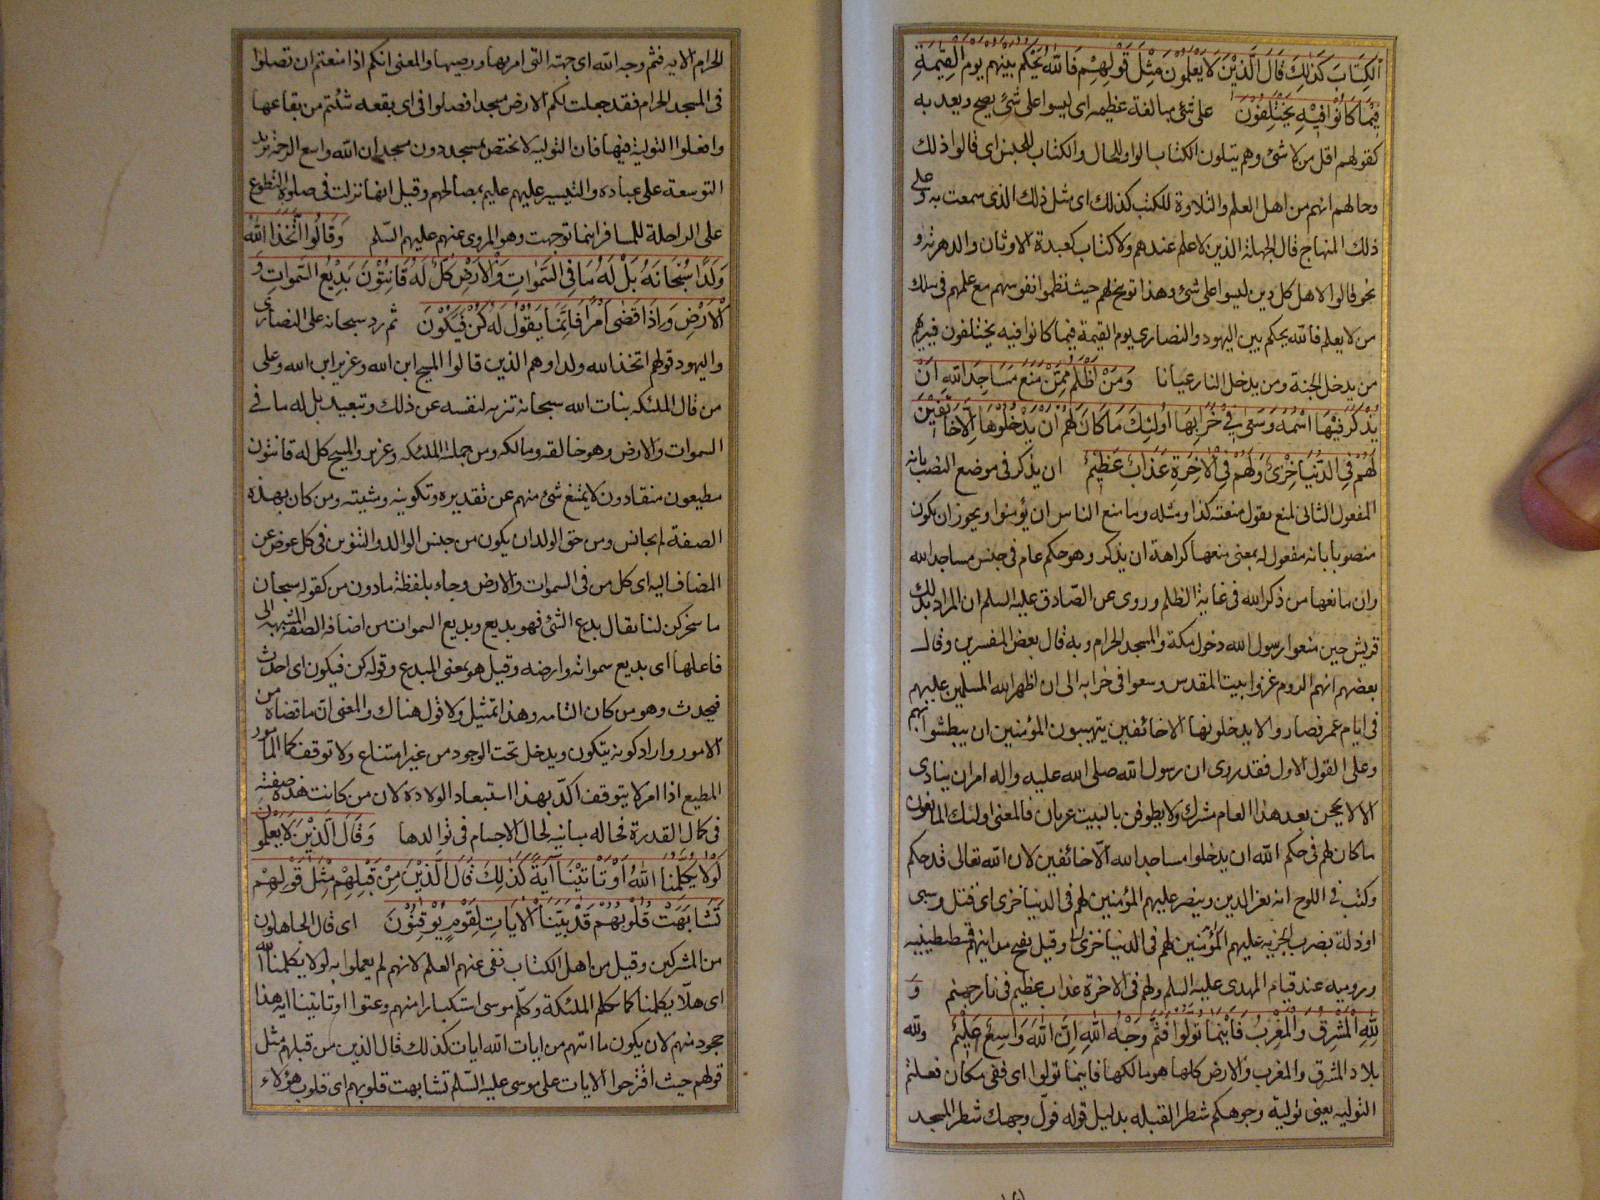 الكِتَابَ كَذٰلِكَ قَالَ الَّذِيْنَ لَا يَعْلَمُونَ مِثْلَ قَوْلِهِمْ فَاللّٰهُ يَحْكُمُ بَيْنَهُمْ يَوْمَ الْقِيٰمَةِ
فِيْمَا كَانُوْا فِيْهِ يَخْتَلِفُوْنَ على شئ مبالغة عظيمه اى ليسوا على شئ يصح ويعد به
كقولهم اقل من لا شئ وهم يتلون الكتاب الواو للحال والكتاب للجنس اى قالوا ذلك
وحالهم انهم من اهل العلم والتلاوة للكتب كذلك اى مثل ذلك الذى سمعت به وعلى
ذلك المنهاج قال الجهلة الذين لا علم عندهم ولا كتاب كعبدة الاوثان والدهرية و
نحو قالوا لاهل كل دين ليسوا على شئ وهذا توبيخ لهم حيث نظموا انفوسهم مع علمهم فى سلك
من لا يعلم فالله يحكم بين اليهود والنصارى يوم القيمة فيما كانوا فيه يختلفون فيريهم
من يدخل الجنة ومن يدخل النار عيانا وَمَنْ اَظْلَمُ مِمَّنْ مَنَعَ مَسَاجِدَ اللّٰهِ اَنْ
يُذْكَرَ فِيْهَا اسْمُهُ وَسَعٰى فِيْ خَرَابِهَا اُولٰئِكَ مَا كَانَ لَهُمْ اَنْ يَدْخُلُوْهَا اِلَّا خَائِفِيْنَ
لَهُمْ فِي الدُّنْيَا خِزْيٌ وَلَهُمْ فِي الْاٰخِرَةِ عَذَابٌ عَظِيْمٌ ان يذكر فى موضع النصب بانه
المفعول الثانى لمنع يقول منعته كذا ومثله وما منع الناس ان يؤمنوا ويجوز ان يكون
منصوبا بانه مفعول له بمعنى منعها كراهة ان يذكر وهو حكم عام فى جنس مساجد الله
وان مانعها من ذكر الله فى غاية الظلم وروى عن الصّادق عليه السلم ان المراد بذلك
قريش حين منعوا رسول الله دخول مكة والمسجد الحرام وبه قال بعض المفسرين وقال
بعضهم انهم الروم غزوا بيت المقدس وسعوا فى خرابه الى ان اظهر الله المسلمين عليهم
فى ايام عمر فصاروا لا يدخلونها الا خائفين يتهيبون المؤمنين ان يبطشوا بهم
وعلى القول الاول فقد روى ان رسول الله صلى الله عليه واله امر ان ينادى
الا لا يحجن بعد هذا العام مشرك ولا يطوفن بالبيت عريان فالمعنى اولئك المانعون
ما كان لهم فى حكم الله ان يدخلوا مساجد الله الّا خائفين لان الله تعالى قد حكم
وكتب فى اللوح انه يعز الدين وينصر عليهم المؤمنين لهم فى الدنيا خزى اى قتل وسبى
او ذلة بضرب الجزيه عليهم لهم فى الدنيا خزى وقيل بفتح مداينهم قسطنطينيه
وروميه عند قيام المهدى عليه السلم ولهم فى الاخرة عذاب عظيم فى نار جهنم وَ
لِلّٰهِ الْمَشْرِقُ وَالْمَغْرِبُ فَاَيْنَمَا تُوَلُّوا فَثَمَّ وَجْهُ اللّٰهِ اِنَّ اللّٰهَ وَاسِعٌ عَلِيْمٌ ولله
بلاد المشرق والمغرب والارض كلها هو مالكها فاينما تولوا اى ففى مكان فعلتم
التوليه يعنى تولية وجوهكم شطر القبله بدليل قوله فولّ وجهك شطر المسجد
الحرام الايه فثم وجه الله اى جهته التى امر بها ورضيها والمعنى انكم اذا منعتم ان تصلوا
فى المسجد الحرام فقد جعلت لكم الارض مسجدا فصلوا فى اى بقعه شئتم من بقاعها
وافعلوا التولية فيها فان التولية لا تختص بمسجد دون مسجد ان الله واسع الرحمة يريد
التوسعة على عباده والتيسير عليهم عليم بمصالحهم وقيل انها نزلت فى صلوة التطوع
على الراحلة للمسافر اينما توجهت وهو المروى عنهم عليهم السّلم وَقَالُوا اتَّخَذَ اللّٰهُ
وَلَدًا سُبْحَانَهُ بَلْ لَهُ مَا فِي السَّمٰوَاتِ وَالْاَرْضِ كُلٌّ لَهُ قَانِتُوْنَ بَدِيْعُ السَّمٰوَاتِ وَ
الْاَرْضِ وَاِذَا قَضٰى اَمْرًا فَاِنَّمَا يَقُوْلُ لَهُ كُنْ فَيَكُوْنُ ثم رد سبحانه على النصارى
واليهود قولهم اتخذ الله ولدا وهم الذين قالوا المسيح ابن الله وعزير ابن الله وعلى
من قال الملئكه بنات الله سبحانه تنزيه لنفسه عن ذلك وتبعيد بل له ما فى
السموات والارض وهو خالقه ومالكه ومن جملته الملئكه وعزير والمسيح كل له قانتون
مطيعون منقادون لا يمتنع شئ منهم عن تقديره وتكوينه ومشيته ومن كان بهذه
الصفة لم يجانس ومن حق الولد ان يكون من جنس الوالد والتنوين فى كل عوض عن
المضاف اليه اى كل من فى السموات والارض وجاء بلفظة ما دون من كقوله سبحان
ما سخركن لنا يقال بدع الشئ فهو بديع وبديع السموات من اضافه الصفة المشبهه الى
فاعلها اى بديع سمواته وارضه وقيل هو بمعنى المبدع وقوله كن فيكون اى احدث
فيحدث وهو من كان التامه وهذا تمثيل ولا قول هناك والمعنى ان ما قضاه من
الامور واراد كونه يتكون ويدخل تحت الوجود من غير امتناع ولا توقف كما المأمور
المطيع اذا امر لا يتوقف اكّد بهذا استبعاد الولادة لان من كانت هذه صفته
فى كمال القدرة فحاله مباينه لحال الاجسام فى توالدها وَقَالَ الَّذِيْنَ لَا يَعْلَمُوْنَ
لَوْلَا يُكَلِّمُنَا اللّٰهُ اَوْ تَأْتِيْنَا آيَةٌ كَذٰلِكَ قَالَ الَّذِيْنَ مِنْ قَبْلِهِمْ مِثْلَ قَوْلِهِمْ
تَشَابَهَتْ قُلُوْبُهُمْ قَدْ بَيَّنَّا الْاٰيَاتِ لِقَوْمٍ يُوْقِنُوْنَ اى قال الجاهلون
من المشركين وقيل من اهل الكتاب نفى عنهم العلم لانهم لم يعملوا به لولا يكلمنا الله
اى هلّا يكلمنا كما كلم الملئكة وكلّم موسى استكبارا منهم وعتوا او تاتينا ايه هذا
جحود منهم لان يكون ما اتهم من ايات الله ايات كذلك قال الذين من قبلهم مثل
قولهم حيث اقترحوا الايات على موسى عليه السّلم تشابهت قلوبهم اى قلوب هؤلاء